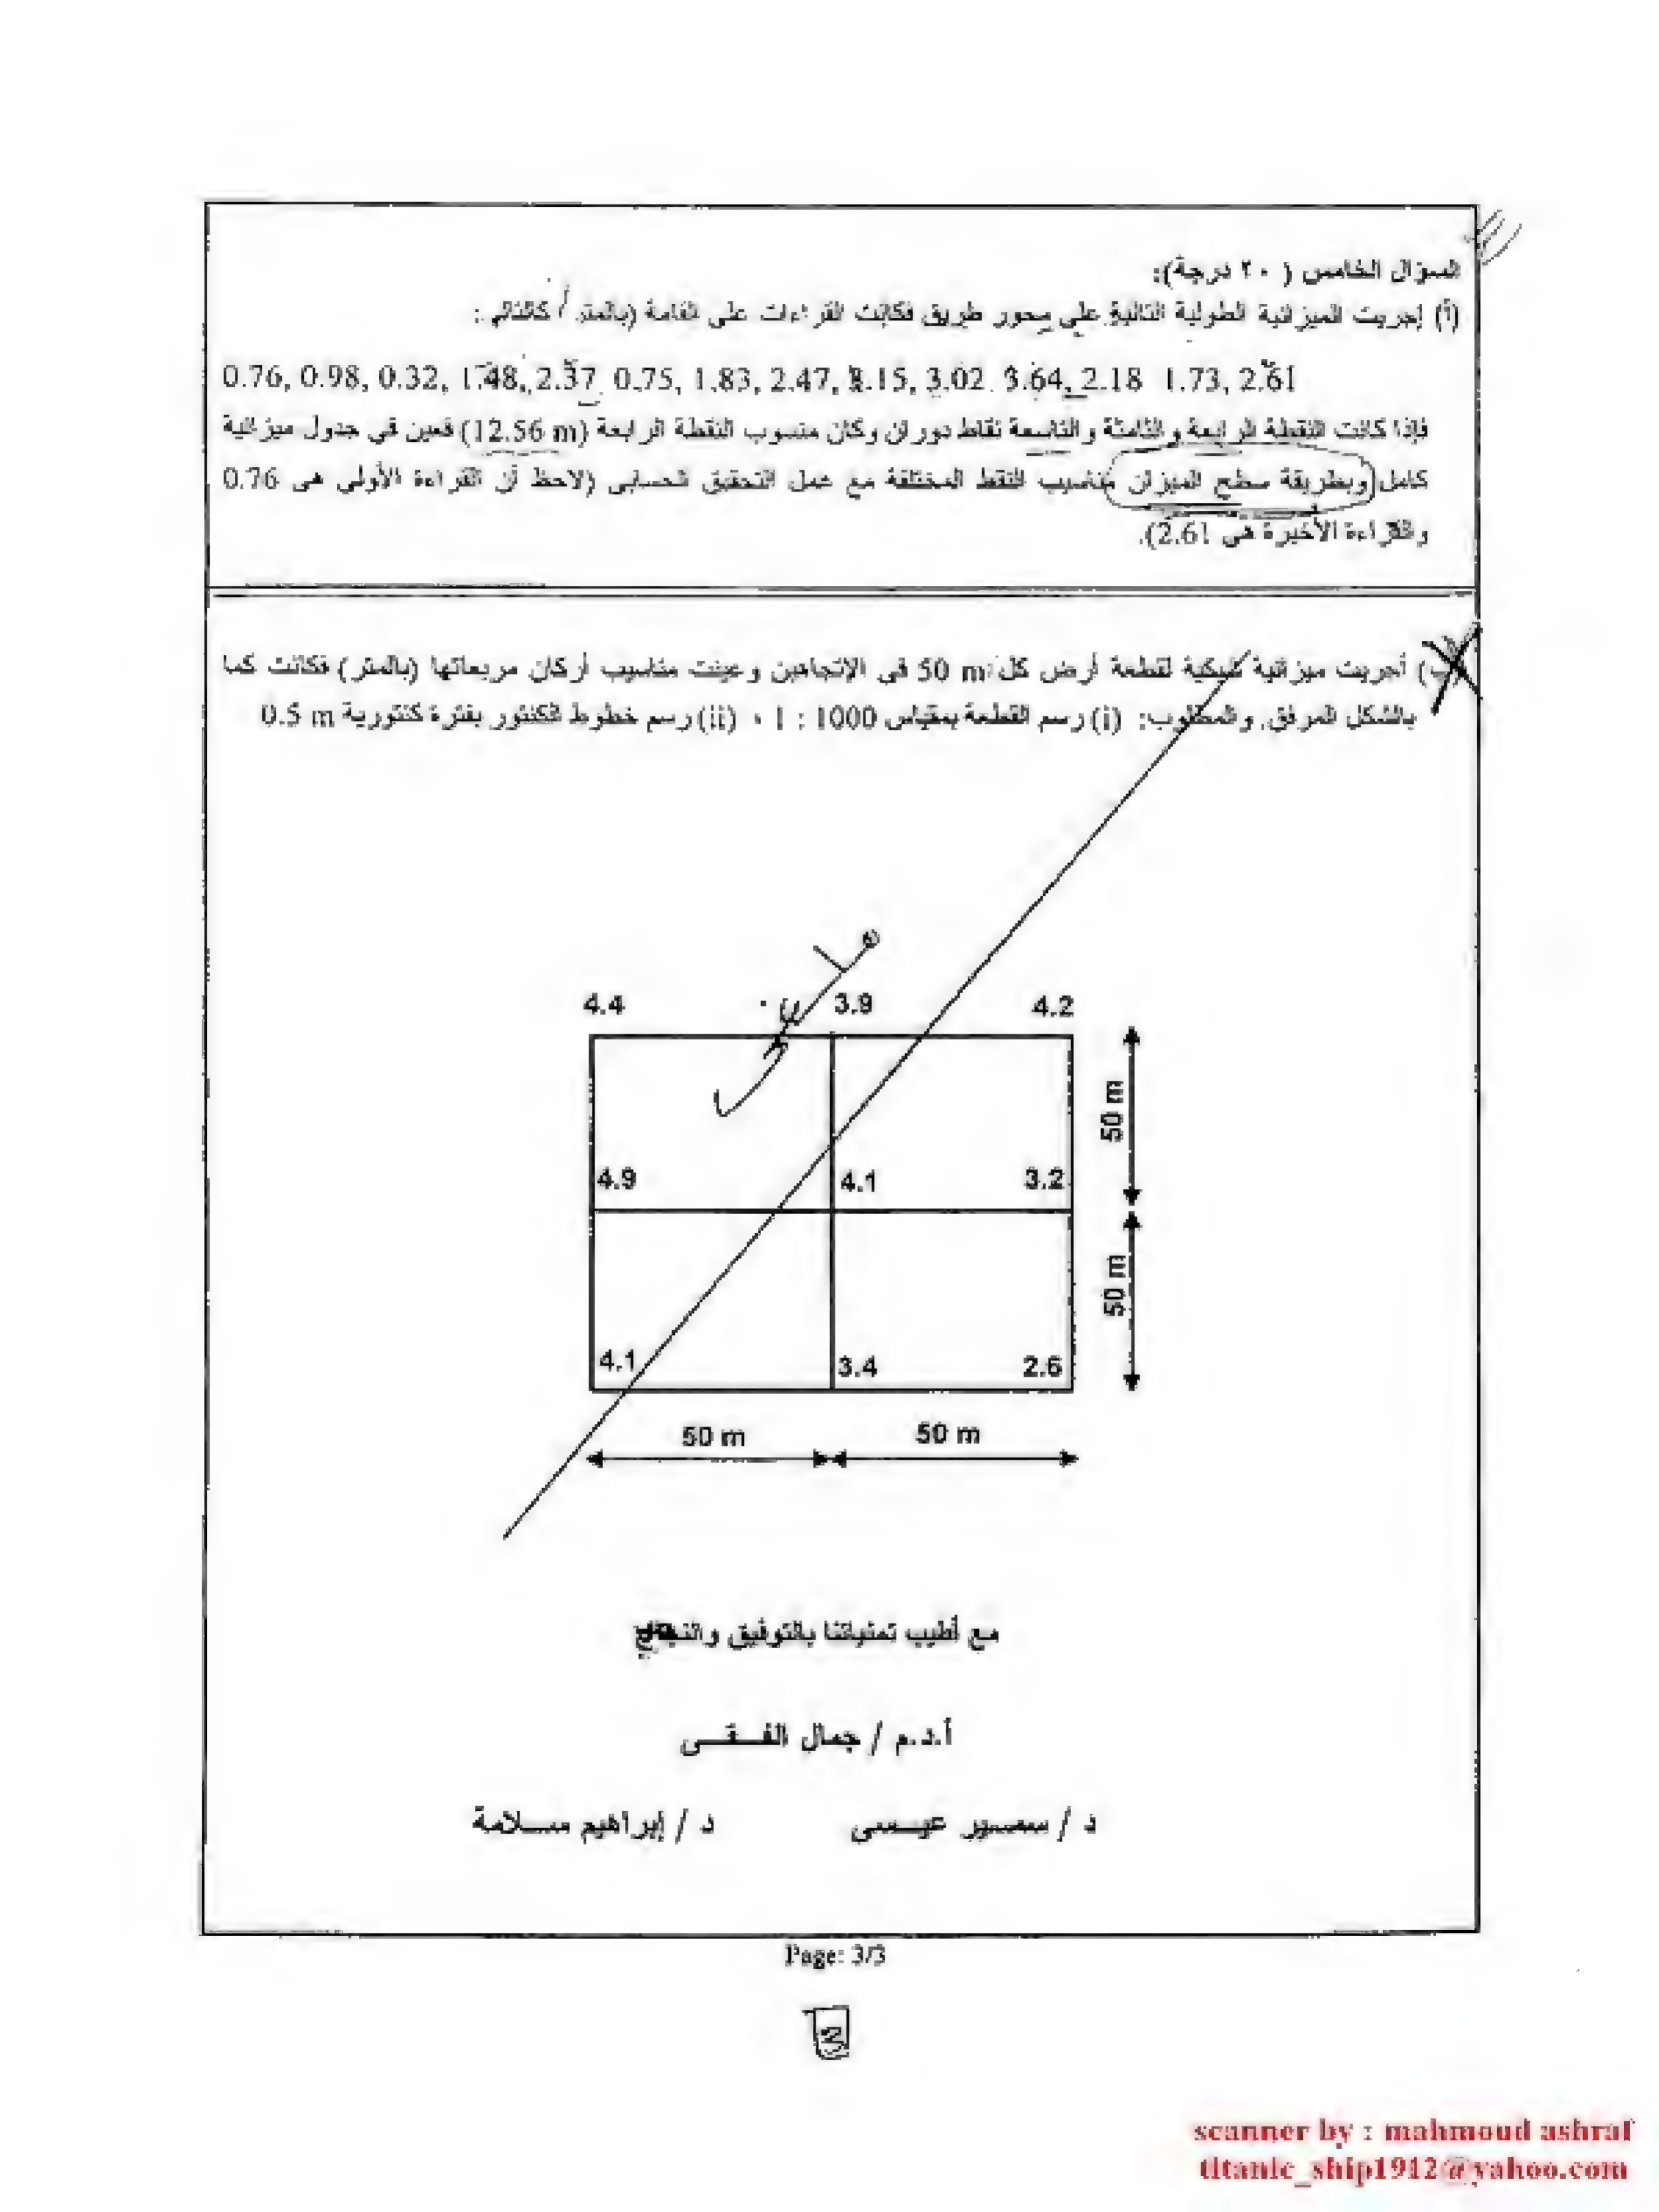 السؤال الخامس ( ٢٠ درجة):
(أ) إجريت الميزانية الطولية التالية على محور طريق فكانت القراءات على القامة (بالمتر) كالتالي :
0.76, 0.98, 0.32, 1.48, 2.37, 0.75, 1.83, 2.47, 3.02, 3.64, 2.18 1.73, 2.61
فإذا كانت النقطة الرابعة والثامنة والتاسعة نقاط دوران وكان منسوب النقطة الرابعة (12.56 m) فعين في جدول ميزانية
كامل وبطريقة سطح الميزان مناسيب النقط المختلفة مع عمل التحقيق الحسابى (لاحظ أن القراءة الأولى هى 0.76
والقراءة الأخيرة هى 2.61).
ب) أجريت ميزانية شبكية لقطعة أرض كل 50 m في الإتجاهين وعينت مناسيب أركان مربعاتها (بالمتر) فكانت كما
بالشكل المرفق. والمطلوب: (i) رسم القطعة بمقياس 1000 : 1 ، (ii) رسم خطوط الكنتور بفترة كنتورية 0.5 m
4.4 3.9 4.2
50 m
4.9 4.1 3.2
50 m
4.1 3.4 2.6
50 m 50 m
مع أطيب تمنياتنا بالتوفيق والنجاح
أ.د.م / جمال الفـــقـــى
د / سمــير عيــسى د / إبراهيم ســـلامة
Page: 3/3
scanner by : mahmoud ashraf
titanic_ship1912@yahoo.com